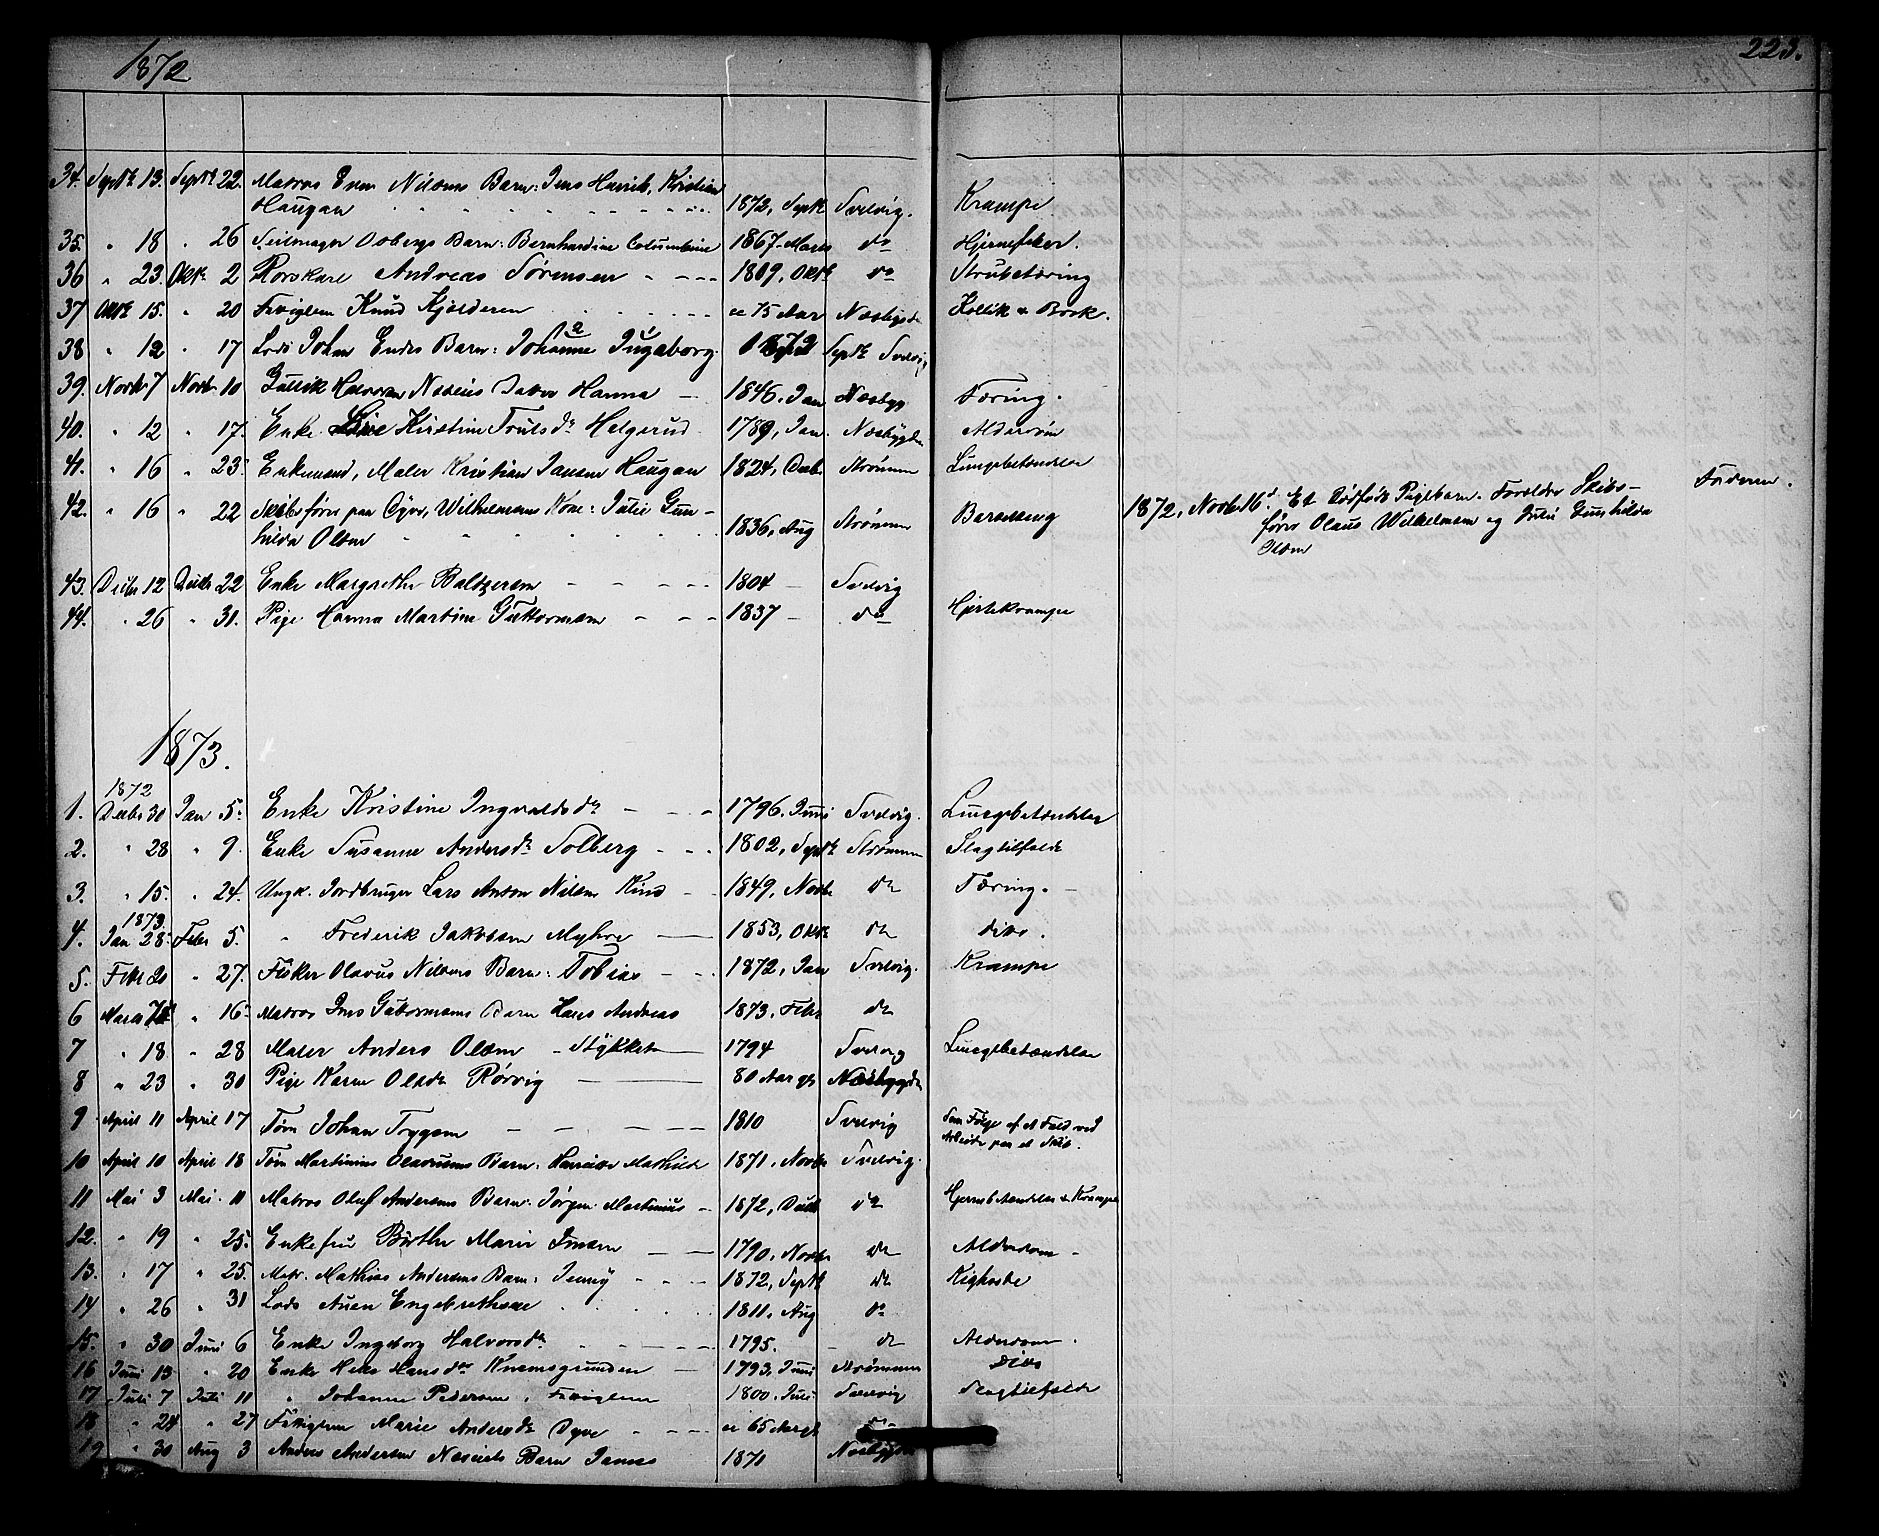 1872
223.
34. Septbr 13. Septbr 22. Matros Even Nilsens Barn: Jens Henrik, Kristian
Haugan 1872, Septbr Svelvig. Krampe
35. " 18 " 26 Seilmager Osbergs Barn: Bernhardine Columbine 1867. Marts do Hjernefeber.
36 " 23. Oktbr 2 Rorskarl Andreas Sørensen 1809, Oktbr do Strubetæring
37 Oktbr 15. " 20 Fattiglem Knud Kjolderen ca 75 Aar Næsbygden Kollik & Brok.
38 " 12 " 17 Lods Johan Enders Barn: Johanne Ingeborg 1872 Septbr Svelvig
39. Novbr 7 Novbr 10 Gullik Halvorsen Næseies Datter Hanna 1846, Jan Næsbygd Tæring.
40. " 12 " 17. Enke Kirstine Truls dr Helgerud 1789, Jan. Næsbygden Alderdom
41. " 16 " 23. Enkemand, Maler Kristian Jansen Haugan 1824, Decbr Strømmen Lungebetændelse
42. " 16 " 22 Skibsfører paa Oyer, Wilhelmsens Kone: Julie Gun-
hilda Olsen 1836, Aug Strømmen Barselseng 1872, Novbr 16d. Et dødfødt Pigebarn. Forældre Skibs-
fører Olaus Wilhelmsen og Julie Gunhilda
Olsen
Faderen.
43. Decbr 12 Decbr 22 Enke Margrethe Baltzersen 1804 Svelvig
44. " 26 " 31. Pige Hanna Martine Guttormsen 1837 do Hjertekrampe
1873.
1872
1. Decbr 30 Jan 5. Enke Kristine Ingvaldsdr 1796. Juni Svelvig. Lungebetændelse
2. " 28 " 9. Enke Susanne Andersdr Solberg 1802, Septbr Strømmen Slagtilfælde
3. " 15. " 24. Ungk. Jordbruger Lars Anton Nilsen Kind 1849, Novbr do Tæring.
1873
4. Jan 28. Febr 5. " Frederik Jakobsen Myhre 1853, Oktbr do dito.
5. Febr 20 " 27. Fisker Olavus Nilsens Barn: Tobias 1872, Jan Svelvig. Krampe
6 Marts " 16. Matros Jens Guttormsens Barn Hans Andreas 1873. Febr do
7 " 18 " 28 Maler Anders Olsen Stykket 1794 Svelvig Lungebetændelse
8 " 23 " 30 Pige Karen Olsdr Rørvig 80 Aar gl Næsbygden
9 April 11 April 17 Tøm Johan Trygsen 1810 Svelvig Som Følge af et Fald ved
Arbeide paa et Skib.
10 April 10 April 18 Tøm Martinius Olavesens Barn: Henriette Mathilde 1871. Novbr Svelvig.
11 Mai 3 Mai. 11 Matros Oluf Andersens Barn: Jørgen Martinius 1872, Decbr do Hjernebetændelse & Krampe
12. " 19 " 25. Enkefru Birthe Marie Jensen 1790. Novbr do Alderdom
13. " 17 " 25. Matr. Mathias Andersens Barn: Jenny 1872, Septbr do Kighoste
14 " 26 " 31 Lods Auen Engebrethsen 1811. Aug do
15. " 30 Juni 6 Enke Ingeborg Halvorsdr 1795. do Alderdom.
16 Juni 13 " 20 Enke Helse Hans dr Knemsgrunden 1793, Juni Strømmen Dito
17 Juli 7 Juli 11 " Johanne Pedersen, Fattiglem 1800. Juli Svelvig Slagtilfælde
18 " 24 " 27 Fattiglem Marie Andersdr Dyve ca 65 Aar gl do
19 " 30 Aug 3 Anders Andersen Næseiets Barn James 1871 Næsbygden